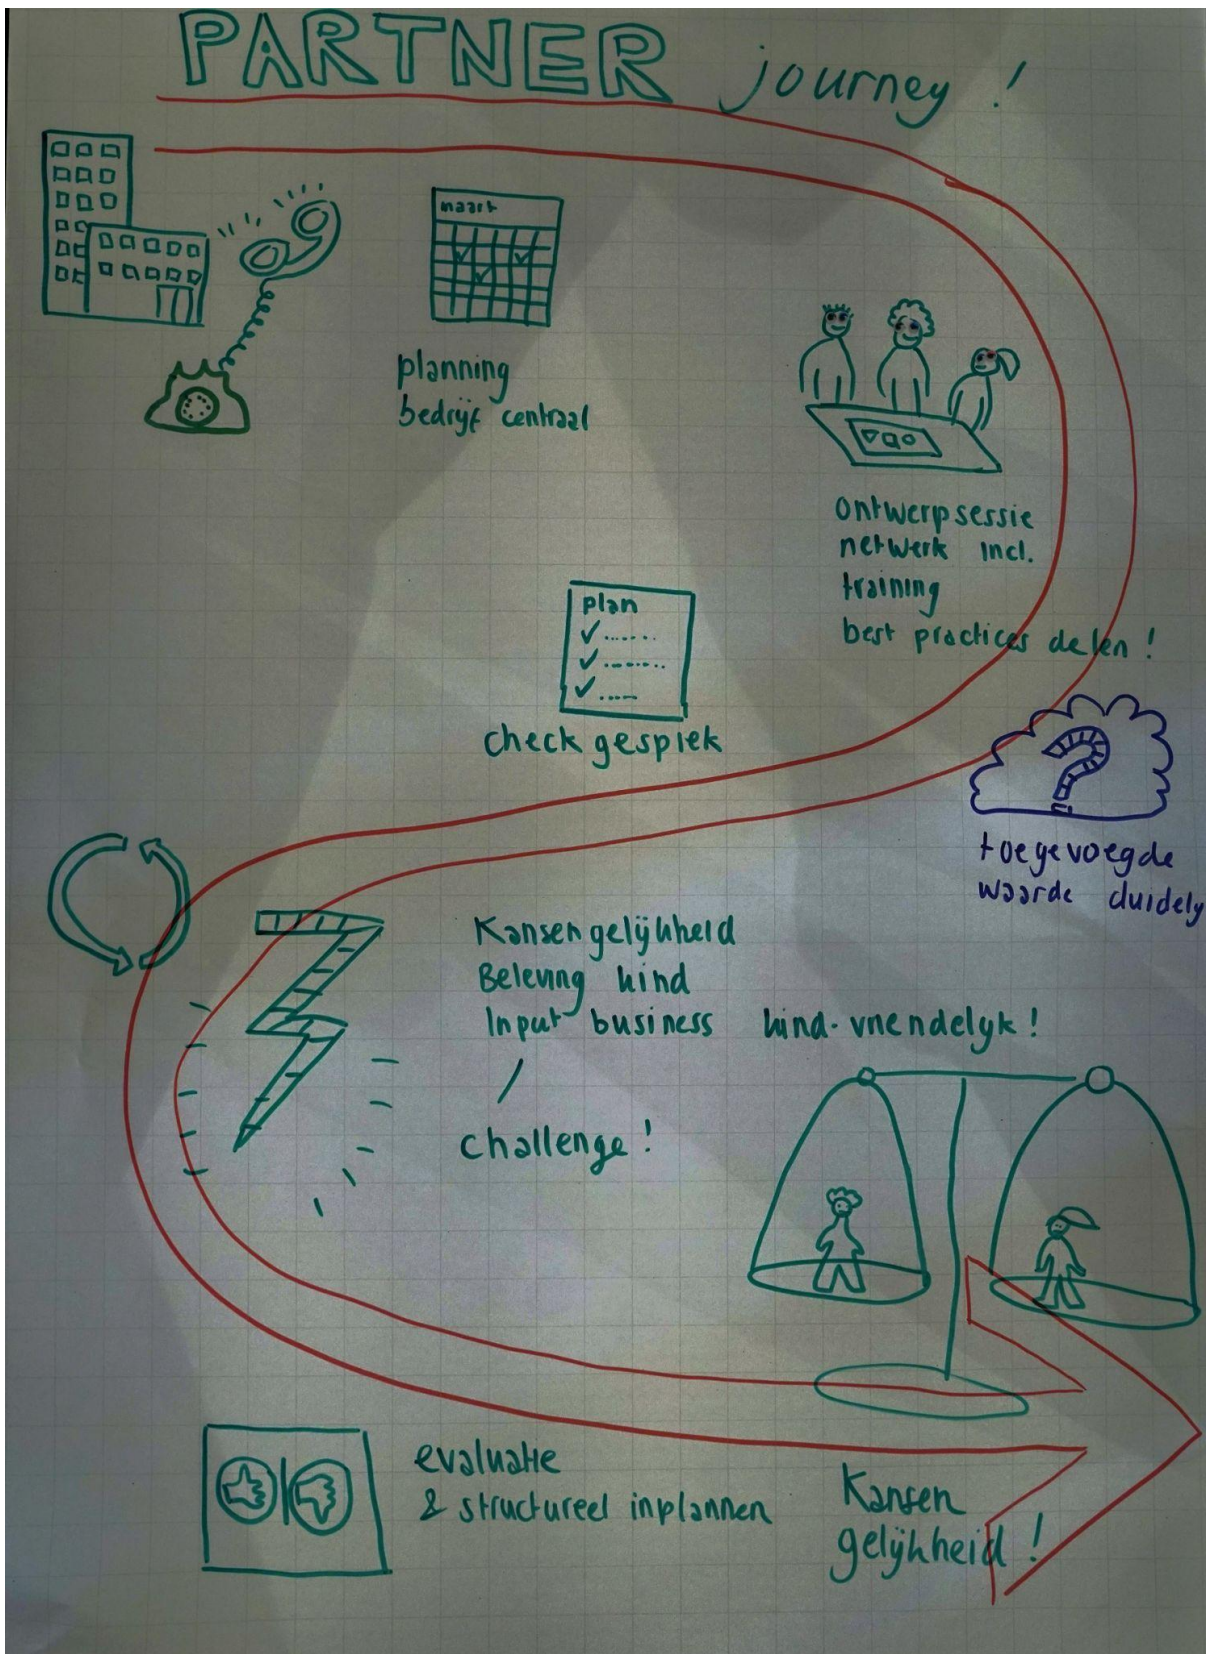 PARTNER journey !
maart
planning
bedrijf centraal
ontwerpsessie
netwerk incl.
training
best practices delen !
plan
check gesprek
?
toegevoegde
waarde duidely
Kansengelijkheid
Beleving kind
Input business
kind-vriendelijk !
/
challenge !
evaluatie
& structureel inplannen
Kansen
gelijkheid !